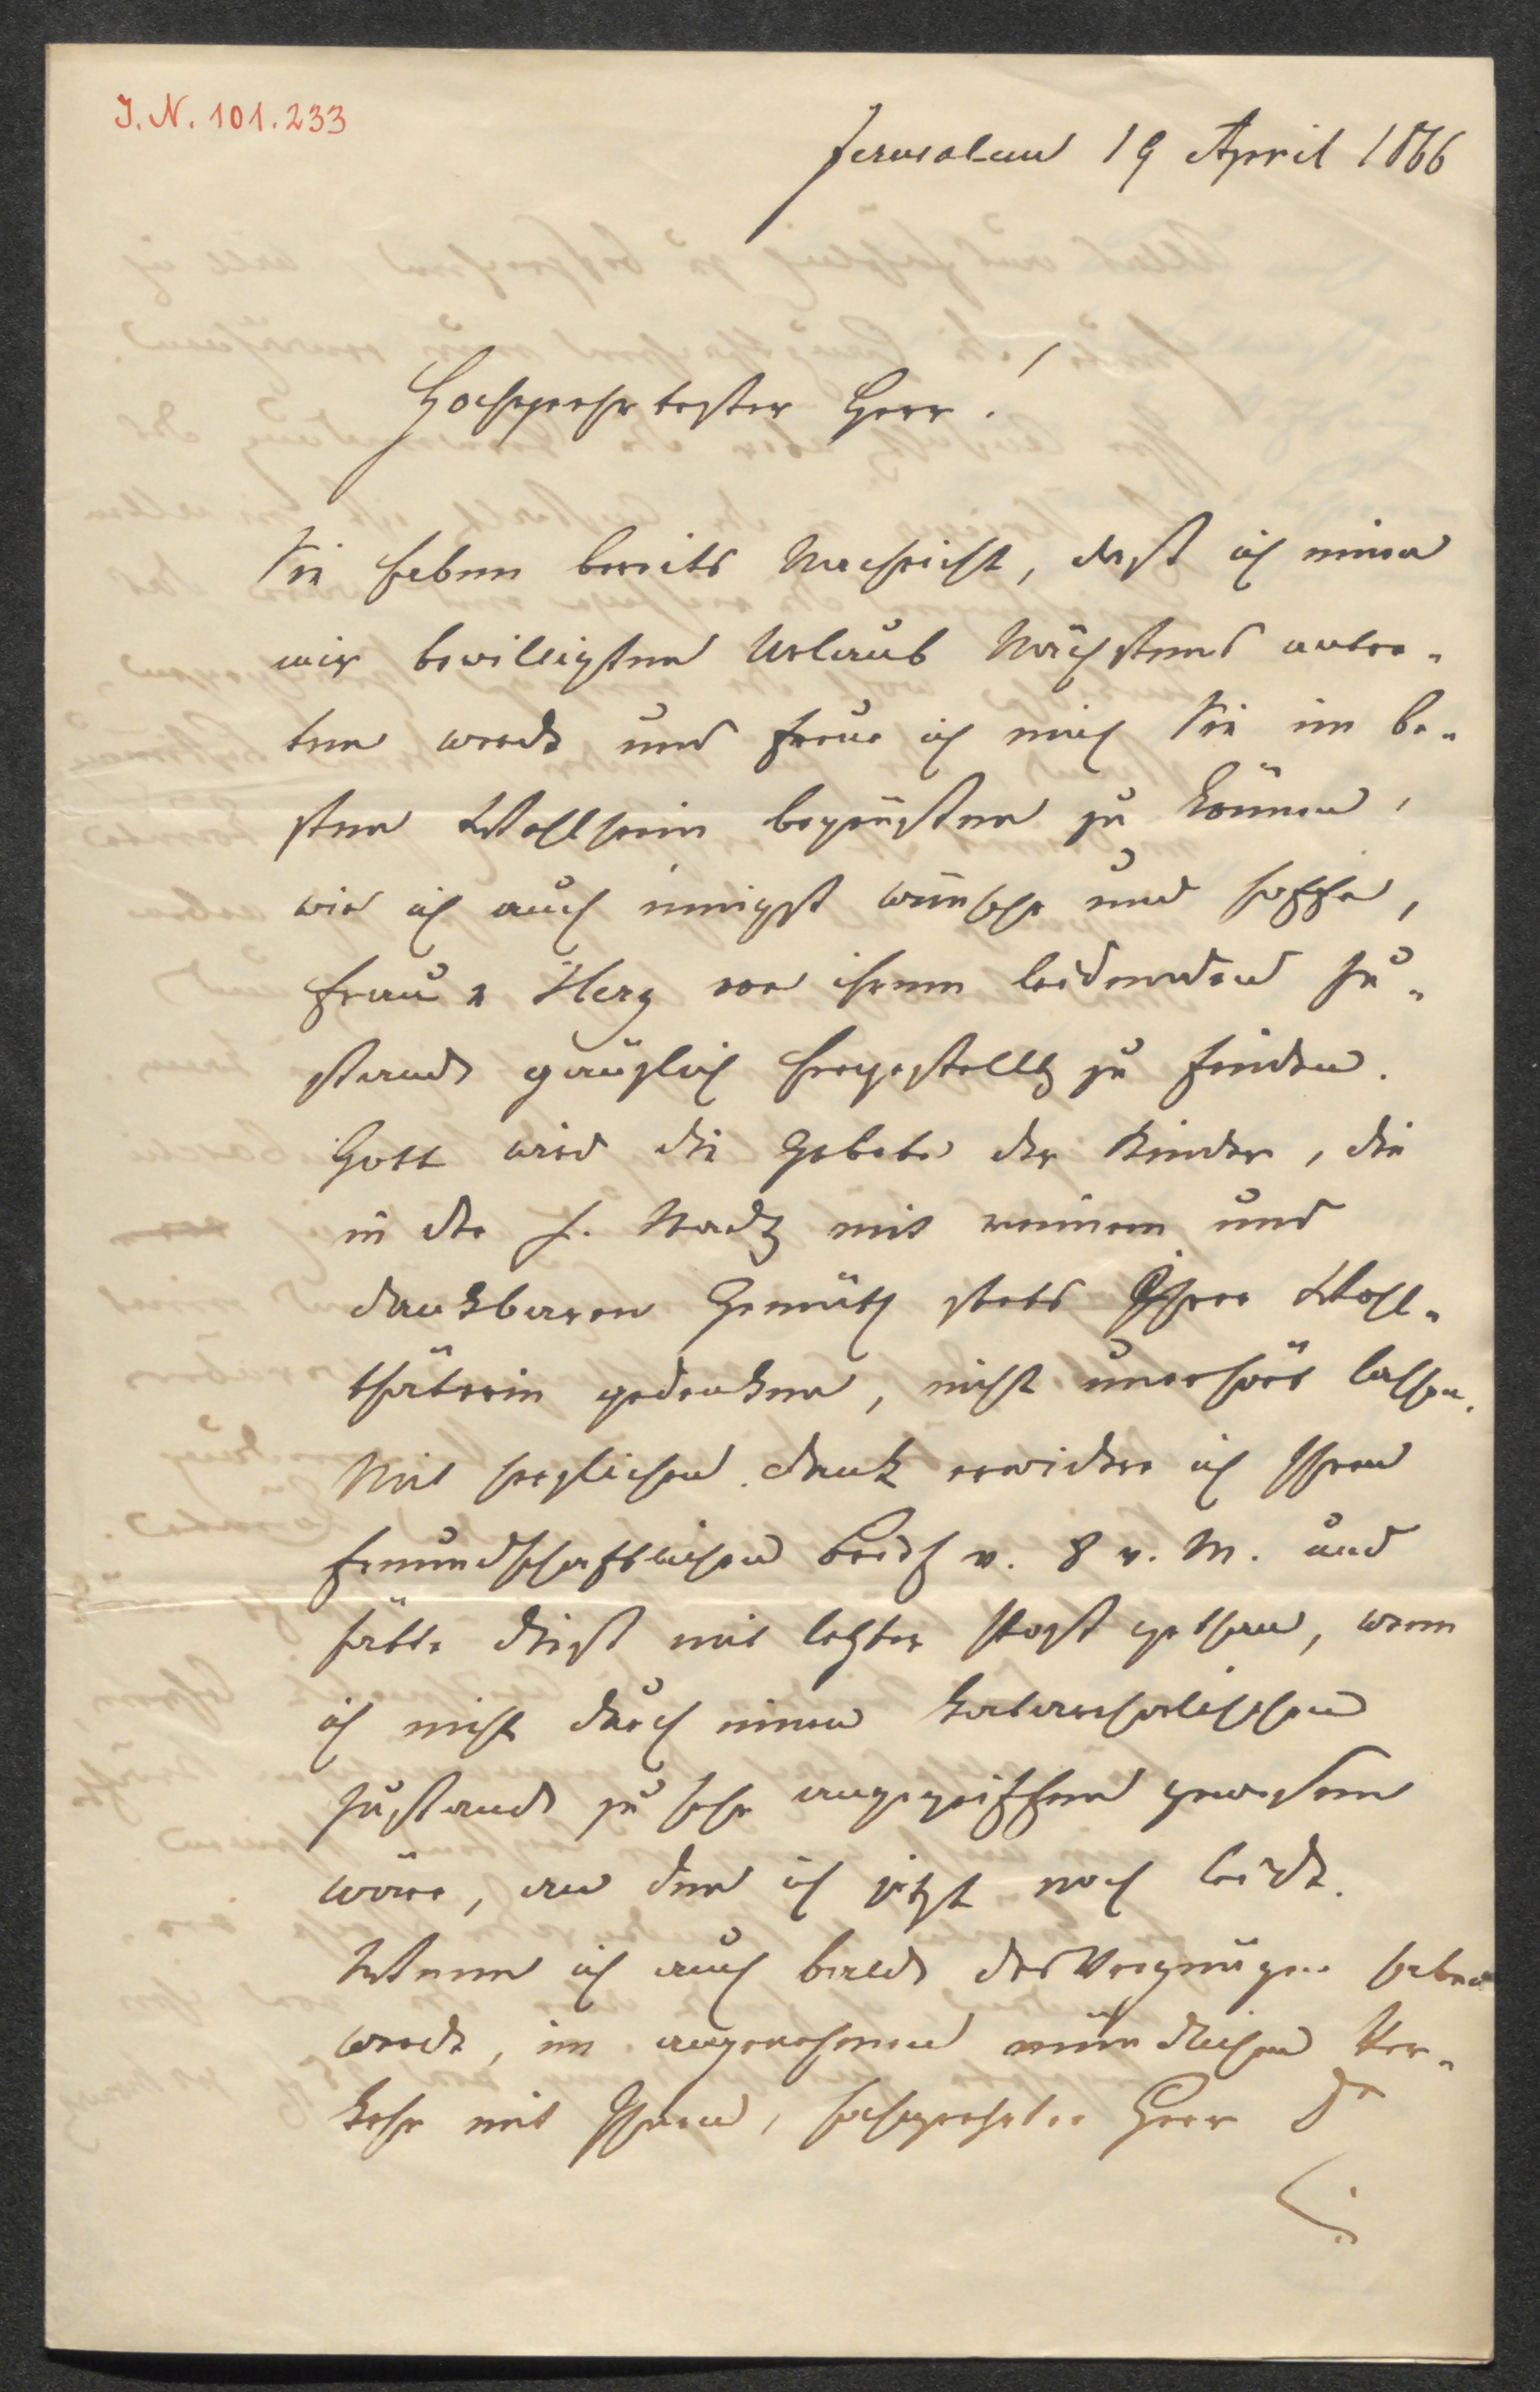 J. N. 101.233
Jerusalem 19 April 1866
Hochgeehrtester Herr!
Sie haben bereits Nachricht, daß ich einen
mir bewilligten Urlaub Nächstens antre-
ten werde und freue ich mich Sie im be-
sten Wohlsein begrüßen zu können,
wie ich auch innigst wünsche und hoffe,
Frau v Herz von ihrem leidenden Zu-
stande gänzlich hergestellt zu finden.
Gott wird die Gebete der Kinder, die
in der h. Stadt mit reinem und
dankbaren Gemüth stets Ihrer Wohl-
thäterin gedenken, nicht unerhört lassen.
Mit herzlichem Dank erwidere ich Ihren
freundschaftlichen Brief v. 8 v. M. und
hätte dieß mit letzter Post gethan, wenn
ich nicht durch einen katarrhalischen
Zustande zu sehr angegriffen gewesen
wäre, an dem ich jetzt noch leide.
Wenn ich auch bald das Vergnügen haben
werde, im angenehmen mündlichen Ver-
kehr mit Ihnen, hochgeehrter Herr Dr